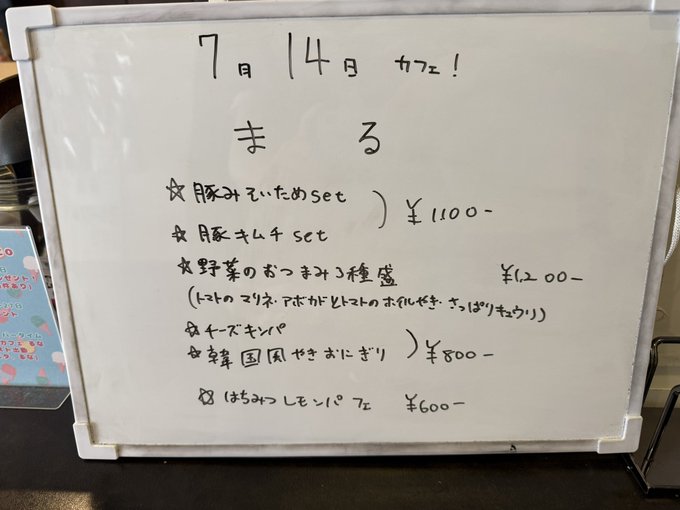 7月 14日 カフェ!
まる
☆豚みそいためset
☆豚キムチset
) ¥1100-
☆野菜のおつまみ3種盛 ¥1,200-
(トマトのマリネ・アボカドとトマトのホイルやき・さっぱりキュウリ)
☆チーズキンパ
☆韓国風やきおにぎり
) ¥800-
☆はちみつレモンパフェ ¥600-